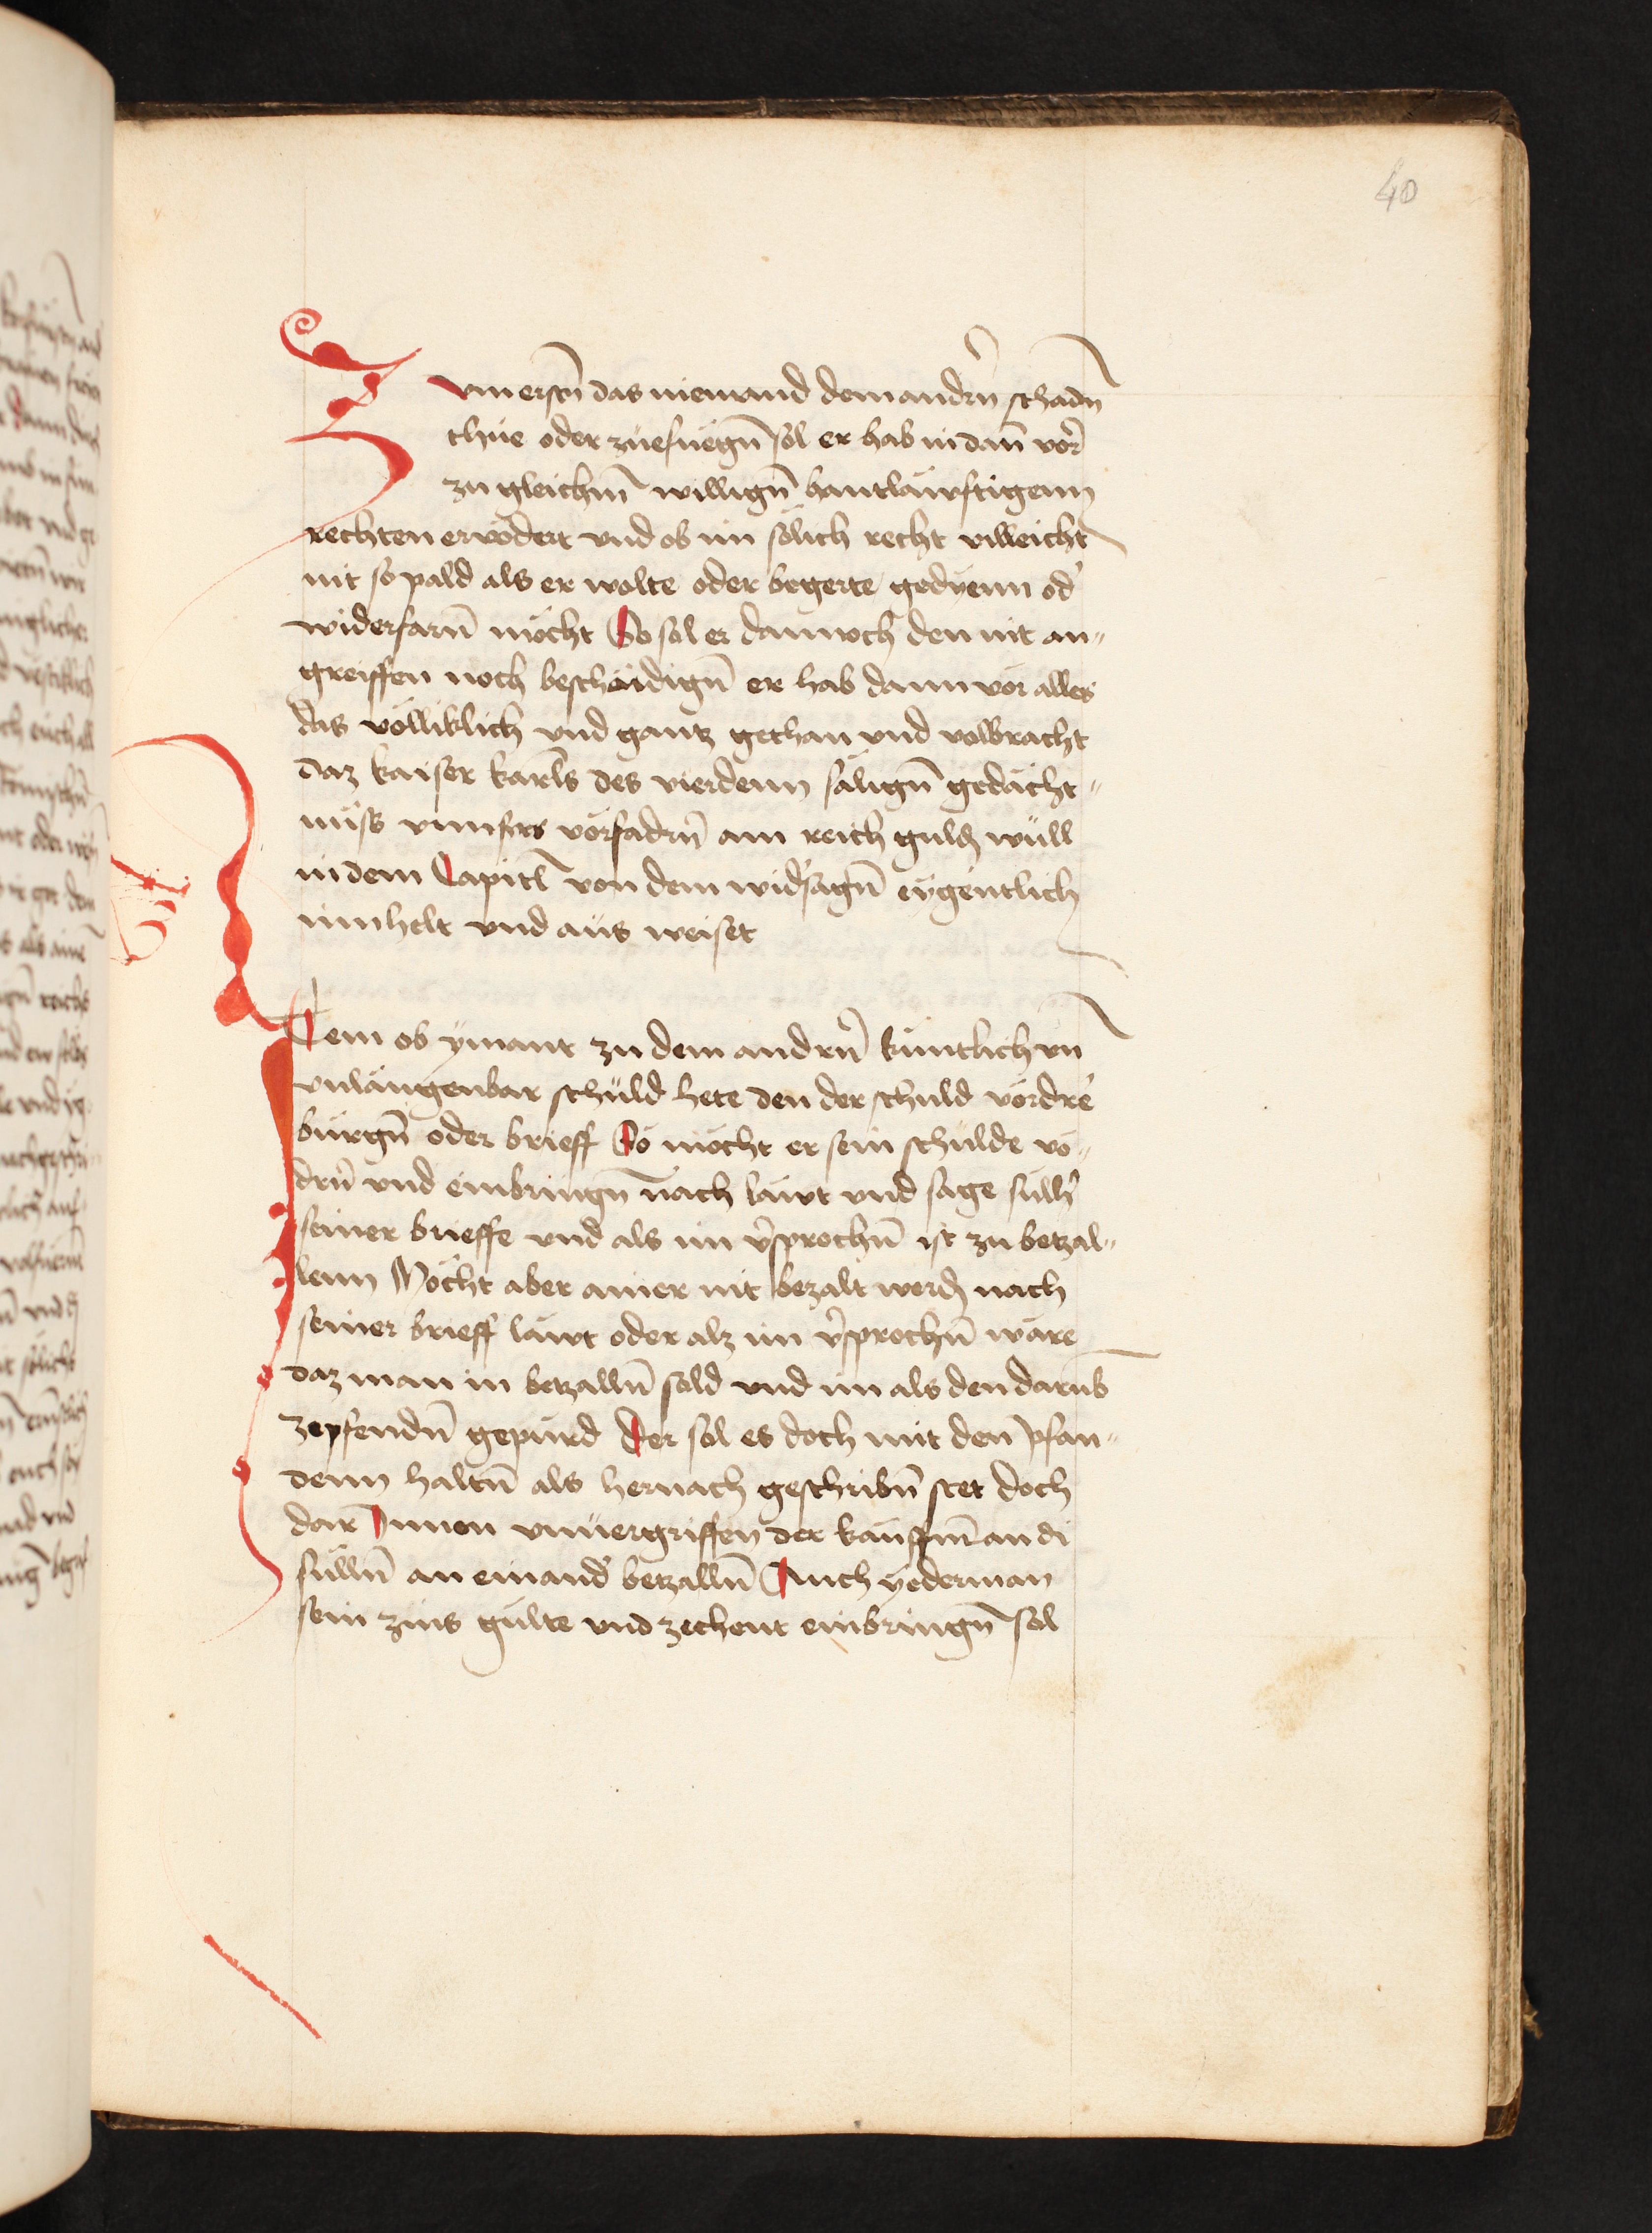 40
Zum erstn̄ das niemand dem andrn̄ schadn̄
thüe oder züefüegn̄ sol er hab in dan̄ vor
zu gleichm̄ willign̄ hantläwftigenn
rechten ervödert vnd ob im sölich recht villeicht
nit so pald als er wolte oder begerte gedyenn od'
widerfarn̄ möcht So sol er dannoch den nit an„
greiffen noch beschädign̄ er hab dann vor alles
das völliklich vnd gantz gethan vnd volbracht
daz kaiser karls des vierdenn sälign̄ gedächt„
nüss vnnsers vorfadrn̄ am reich guld wüll
in dem Capitl von dem wid'sagn̄ eygentlich
innhelt vnd aus weiset
Item ob ymant zu dem andrn̄ küntlich vn̄
vnlaugenbar schüld hete den der schuld vördre
bürgn̄ oder brieff So möcht er sein schulde vö„
drn̄ vnd einbringn̄ nach läwt vnd sage sülh'
seiner brieffe vnd als im v'sprochn̄ ist zu betzal„
lenn Möcht aber ainer nit bezalt werd nach
seiner brieff läwt oder alz im v'sprochn̄ wäre
daz man in betzalln̄ sold vnd im als den darūb
zepfendn̄ gepürd Der sol es doch mit den pfan„
denn haltn̄ als hernach geschribn̄ stet doch
dar Innen vnuergriffen der kauffman di
sülln̄ an einand' betzalln̄ Auch yederman
sein zins gülte vnd zehent einbringn̄ sol